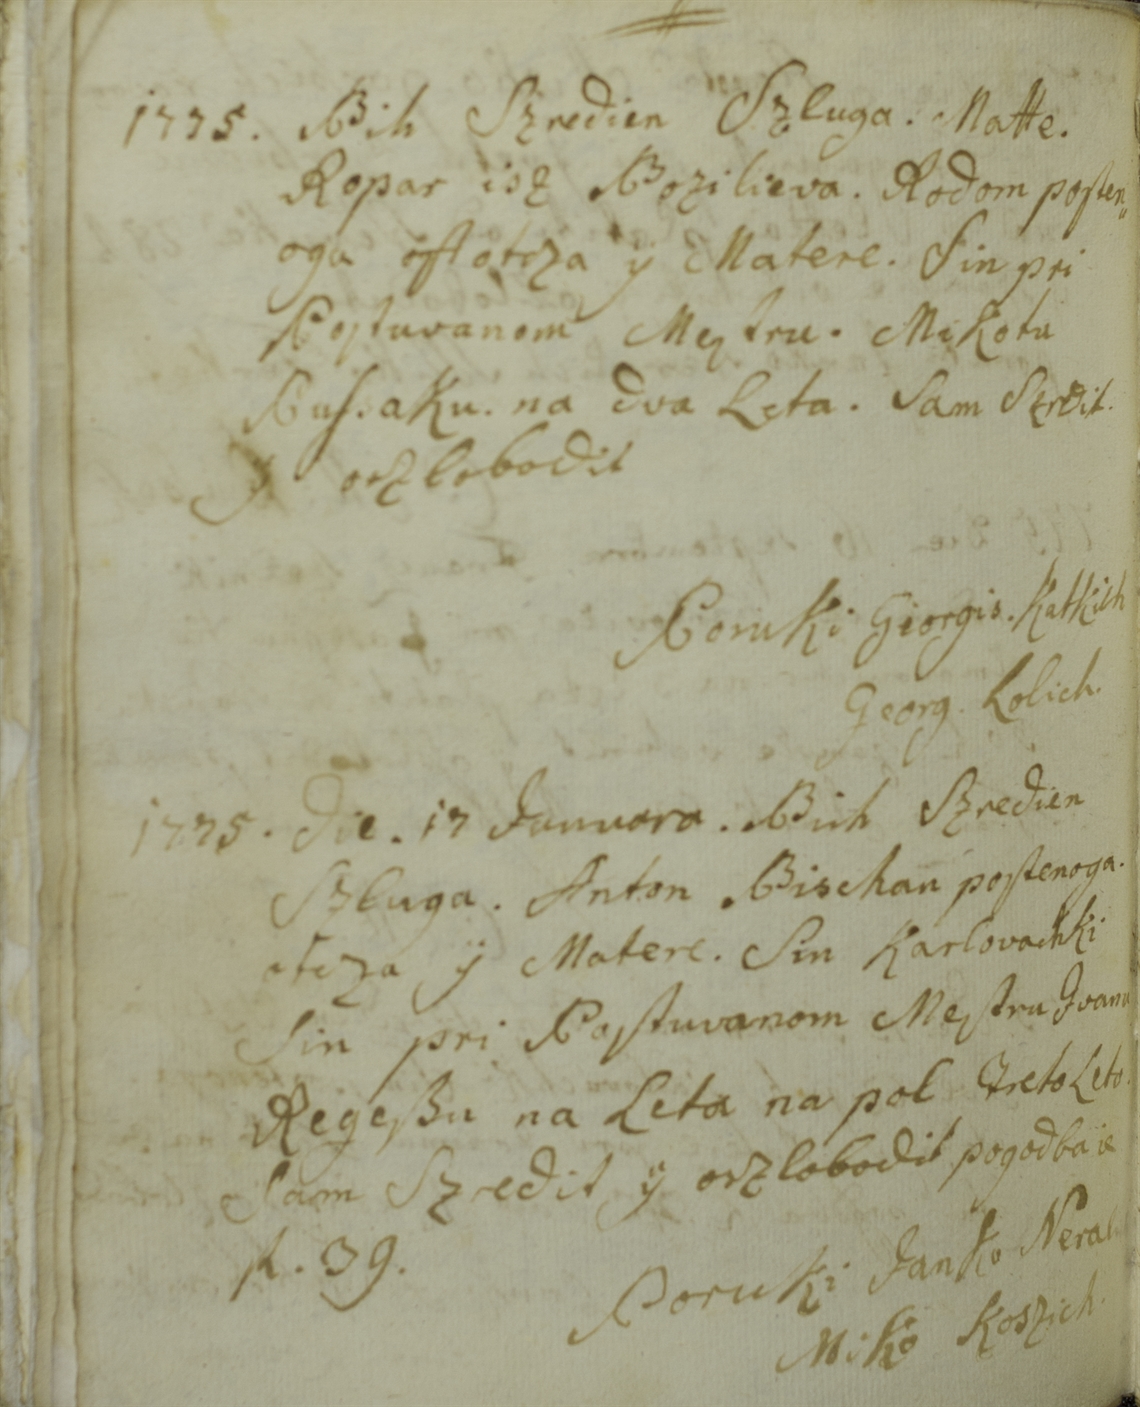 1775. Bih Szredien Szluga. Matte.
Ropar isz Bozilieva. Rodom posten„
oga otcza ÿ Matere. Sin pri
Postuvanom Mestru. Mikotu
na dva Leta. Sam Szredit.
ÿ oszlobodit
Poruki Giorgis. Katkich
Georg. Lolich.
1775. Die. 17 Januara. Bih Szredien
Szluga. Anton Bischan postenoga.
otcza ÿ Matere. Sin Karlovachki
Sin pri Postuvanom Mestru Ivanu
na Leta na pol Treto Leto.
Sam Szredit ÿ oszlobodit pogodba ie
f. 39.
Poruki Janko
Miko Koszich.